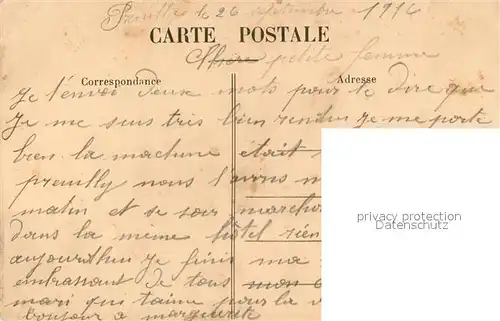 Preuilly le 26 septembre 1916
CARTE POSTALE
Chère petite femme
Correspondance
Adresse
Je t'envoi deux mots pour te dire que
Je me suis très bien rendu Je me porte
bien la machine était
preuilly nous l'avons
matin et se soir
dans la même hôtel
aujourdhui Je finis ma
embrassant de tous mon
mari qui taime pour la
bonjour à marguerite
privacy protection
Datenschutz